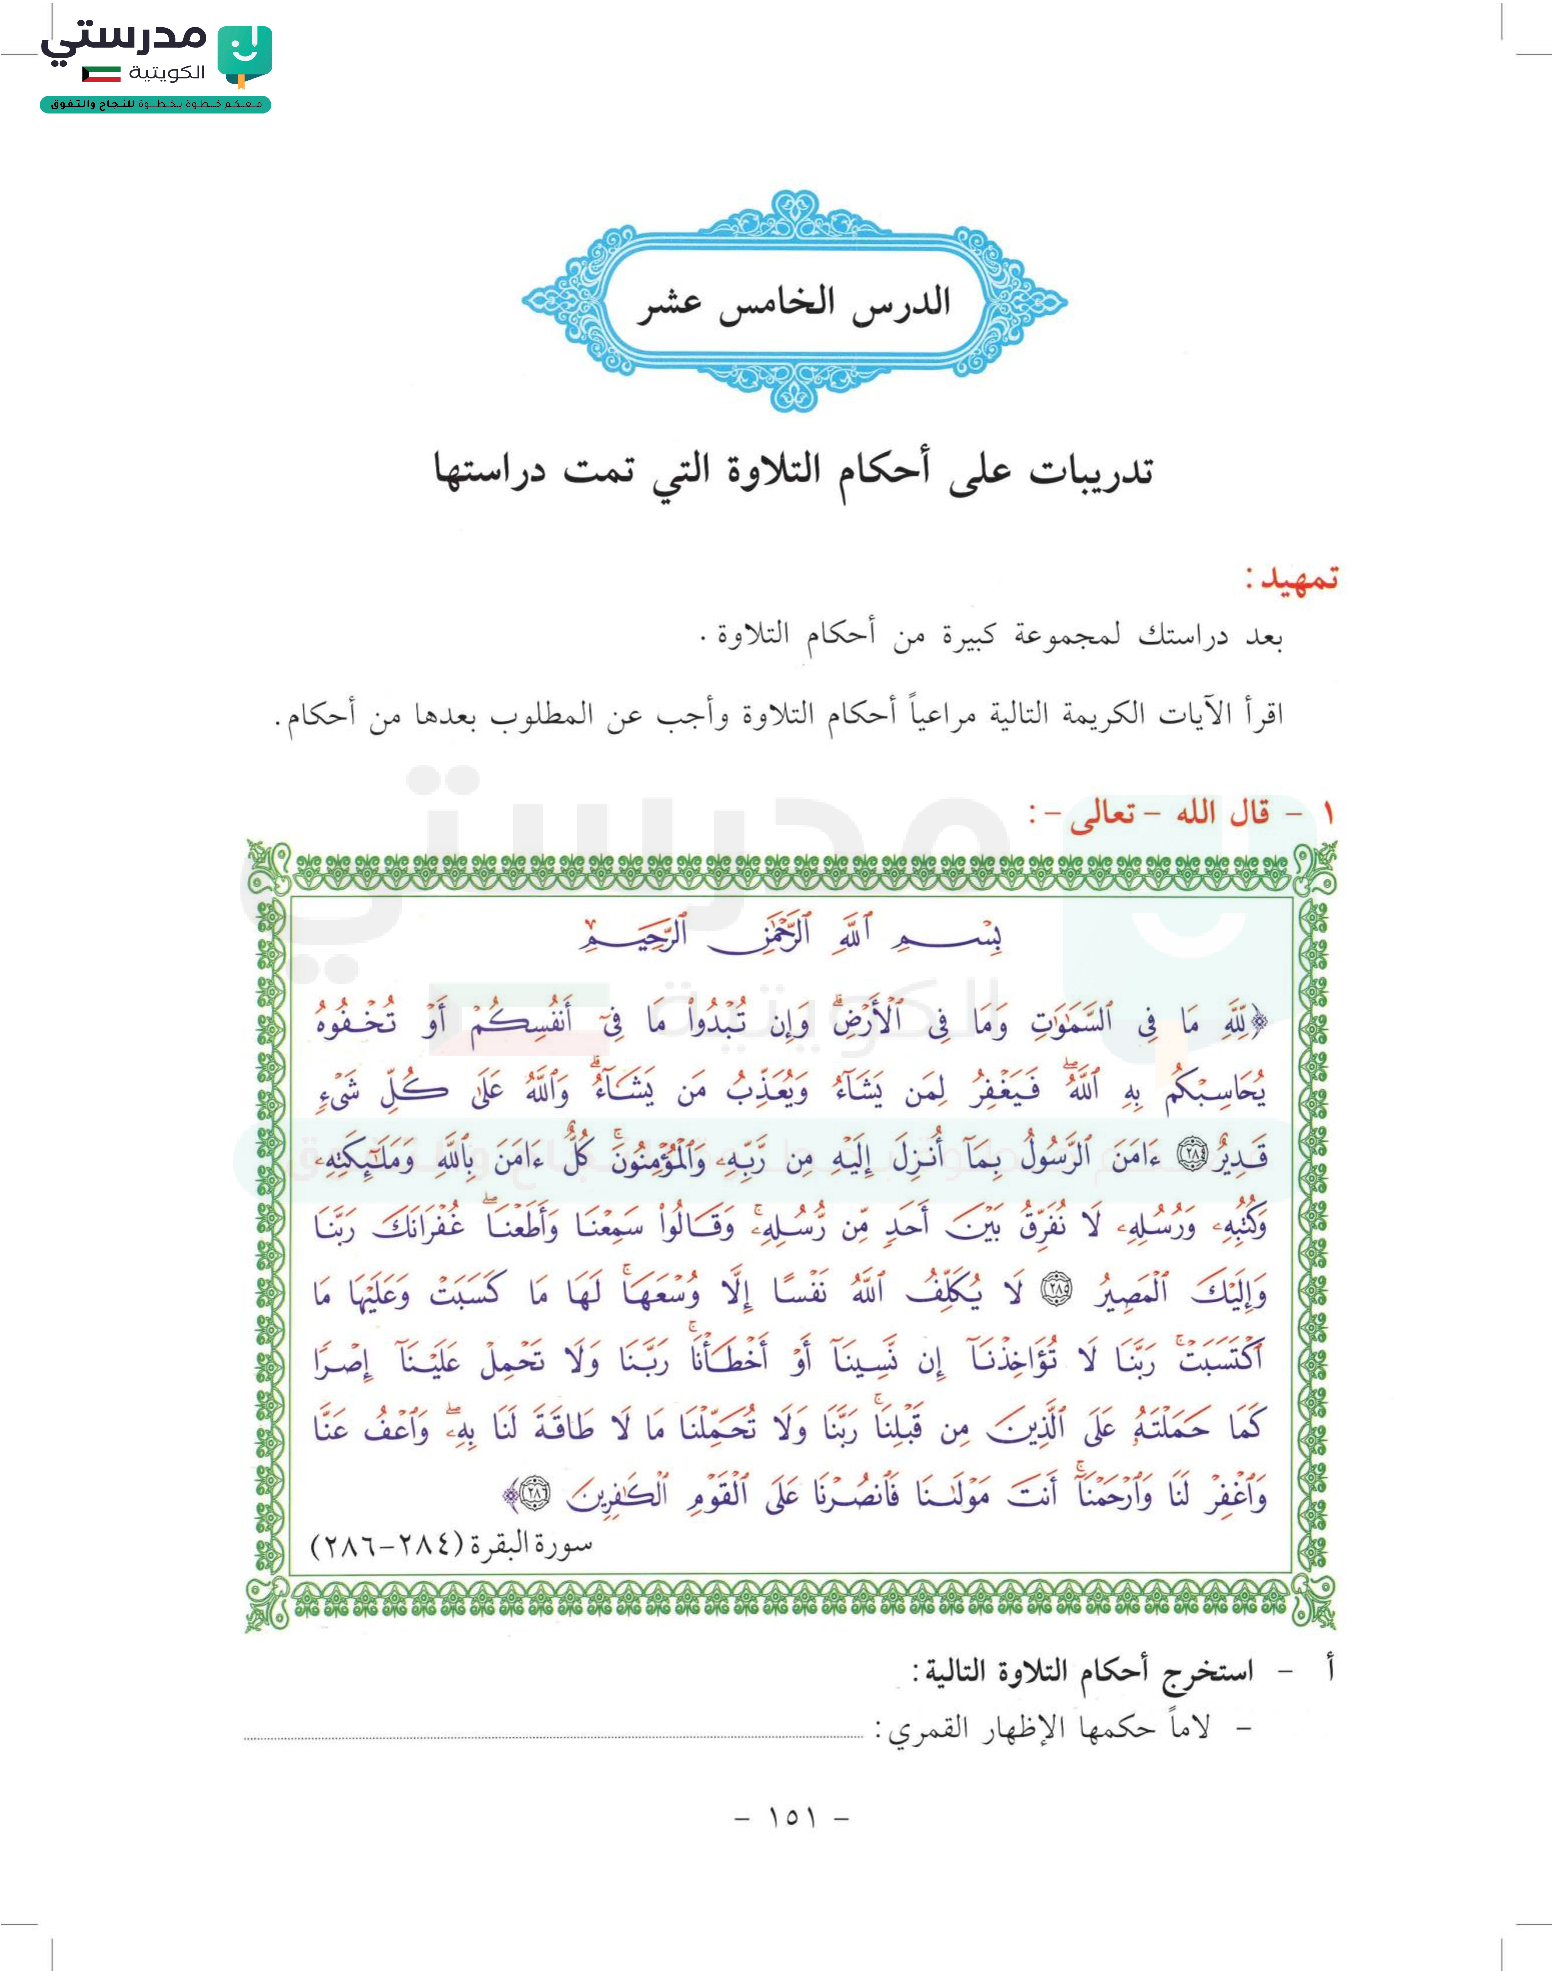 مدرستي
الكويتية
معكم خطوة بخطوة للنجاح والتفوق
الدرس الخامس عشر
تدريبات على أحكام التلاوة التي تمت دراستها
تمهيد :
بعد دراستك لمجموعة كبيرة من أحكام التلاوة .
اقرأ الآيات الكريمة التالية مراعياً أحكام التلاوة وأجب عن المطلوب بعدها من أحكام .
١ - قال الله - تعالى - :
بِسْمِ ٱللَّهِ ٱلرَّحْمَٰنِ ٱلرَّحِيمِ
﴿لِلَّهِ مَا فِى ٱلسَّمَٰوَٰتِ وَمَا فِى ٱلْأَرْضِۗ وَإِن تُبْدُوا۟ مَا فِىٓ أَنفُسِكُمْ أَوْ تُخْفُوهُ
يُحَاسِبْكُم بِهِ ٱللَّهُۖ فَيَغْفِرُ لِمَن يَشَآءُ وَيُعَذِّبُ مَن يَشَآءُۗ وَٱللَّهُ عَلَىٰ كُلِّ شَىْءٍ
قَدِيرٌ ٢٨٤ ءَامَنَ ٱلرَّسُولُ بِمَآ أُنزِلَ إِلَيْهِ مِن رَّبِّهِۦ وَٱلْمُؤْمِنُونَۚ كُلٌّ ءَامَنَ بِٱللَّهِ وَمَلَٰٓئِكَتِهِۦ
وَكُتُبِهِۦ وَرُسُلِهِۦ لَا نُفَرِّقُ بَيْنَ أَحَدٍ مِّن رُّسُلِهِۦۚ وَقَالُوا۟ سَمِعْنَا وَأَطَعْنَاۖ غُفْرَانَكَ رَبَّنَا
وَإِلَيْكَ ٱلْمَصِيرُ ٢٨٥ لَا يُكَلِّفُ ٱللَّهُ نَفْسًا إِلَّا وُسْعَهَاۚ لَهَا مَا كَسَبَتْ وَعَلَيْهَا مَا
ٱكْتَسَبَتْۗ رَبَّنَا لَا تُؤَاخِذْنَآ إِن نَّسِينَآ أَوْ أَخْطَأْنَاۚ رَبَّنَا وَلَا تَحْمِلْ عَلَيْنَآ إِصْرًا
كَمَا حَمَلْتَهُۥ عَلَى ٱلَّذِينَ مِن قَبْلِنَاۚ رَبَّنَا وَلَا تُحَمِّلْنَا مَا لَا طَاقَةَ لَنَا بِهِۦۖ وَٱعْفُ عَنَّا
وَٱغْفِرْ لَنَا وَٱرْحَمْنَآۚ أَنتَ مَوْلَىٰنَا فَٱنصُرْنَا عَلَى ٱلْقَوْمِ ٱلْكَٰفِرِينَ ٢٨٦﴾
سورة البقرة (٢٨٤-٢٨٦)
أ - استخرج أحكام التلاوة التالية :
- لاماً حكمها الإظهار القمري :
- ١٥١ -